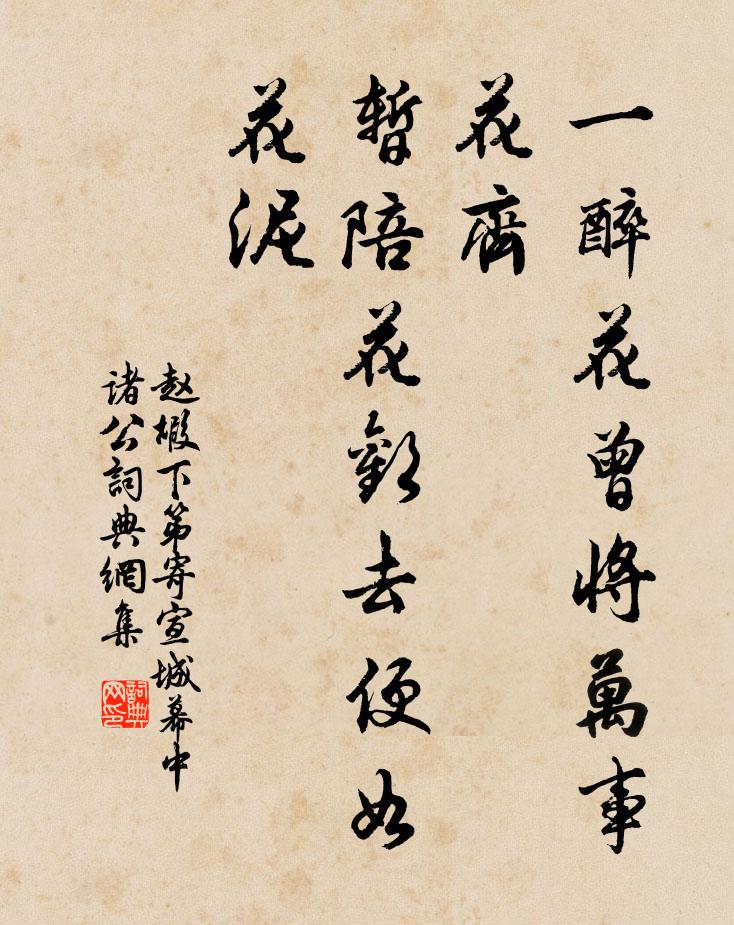 一醉花曾將萬事
花齊
暫陪花歡去便如
花泥
赵嘏下第寄宣城幕中
诸公詞典網集
詞典
网印